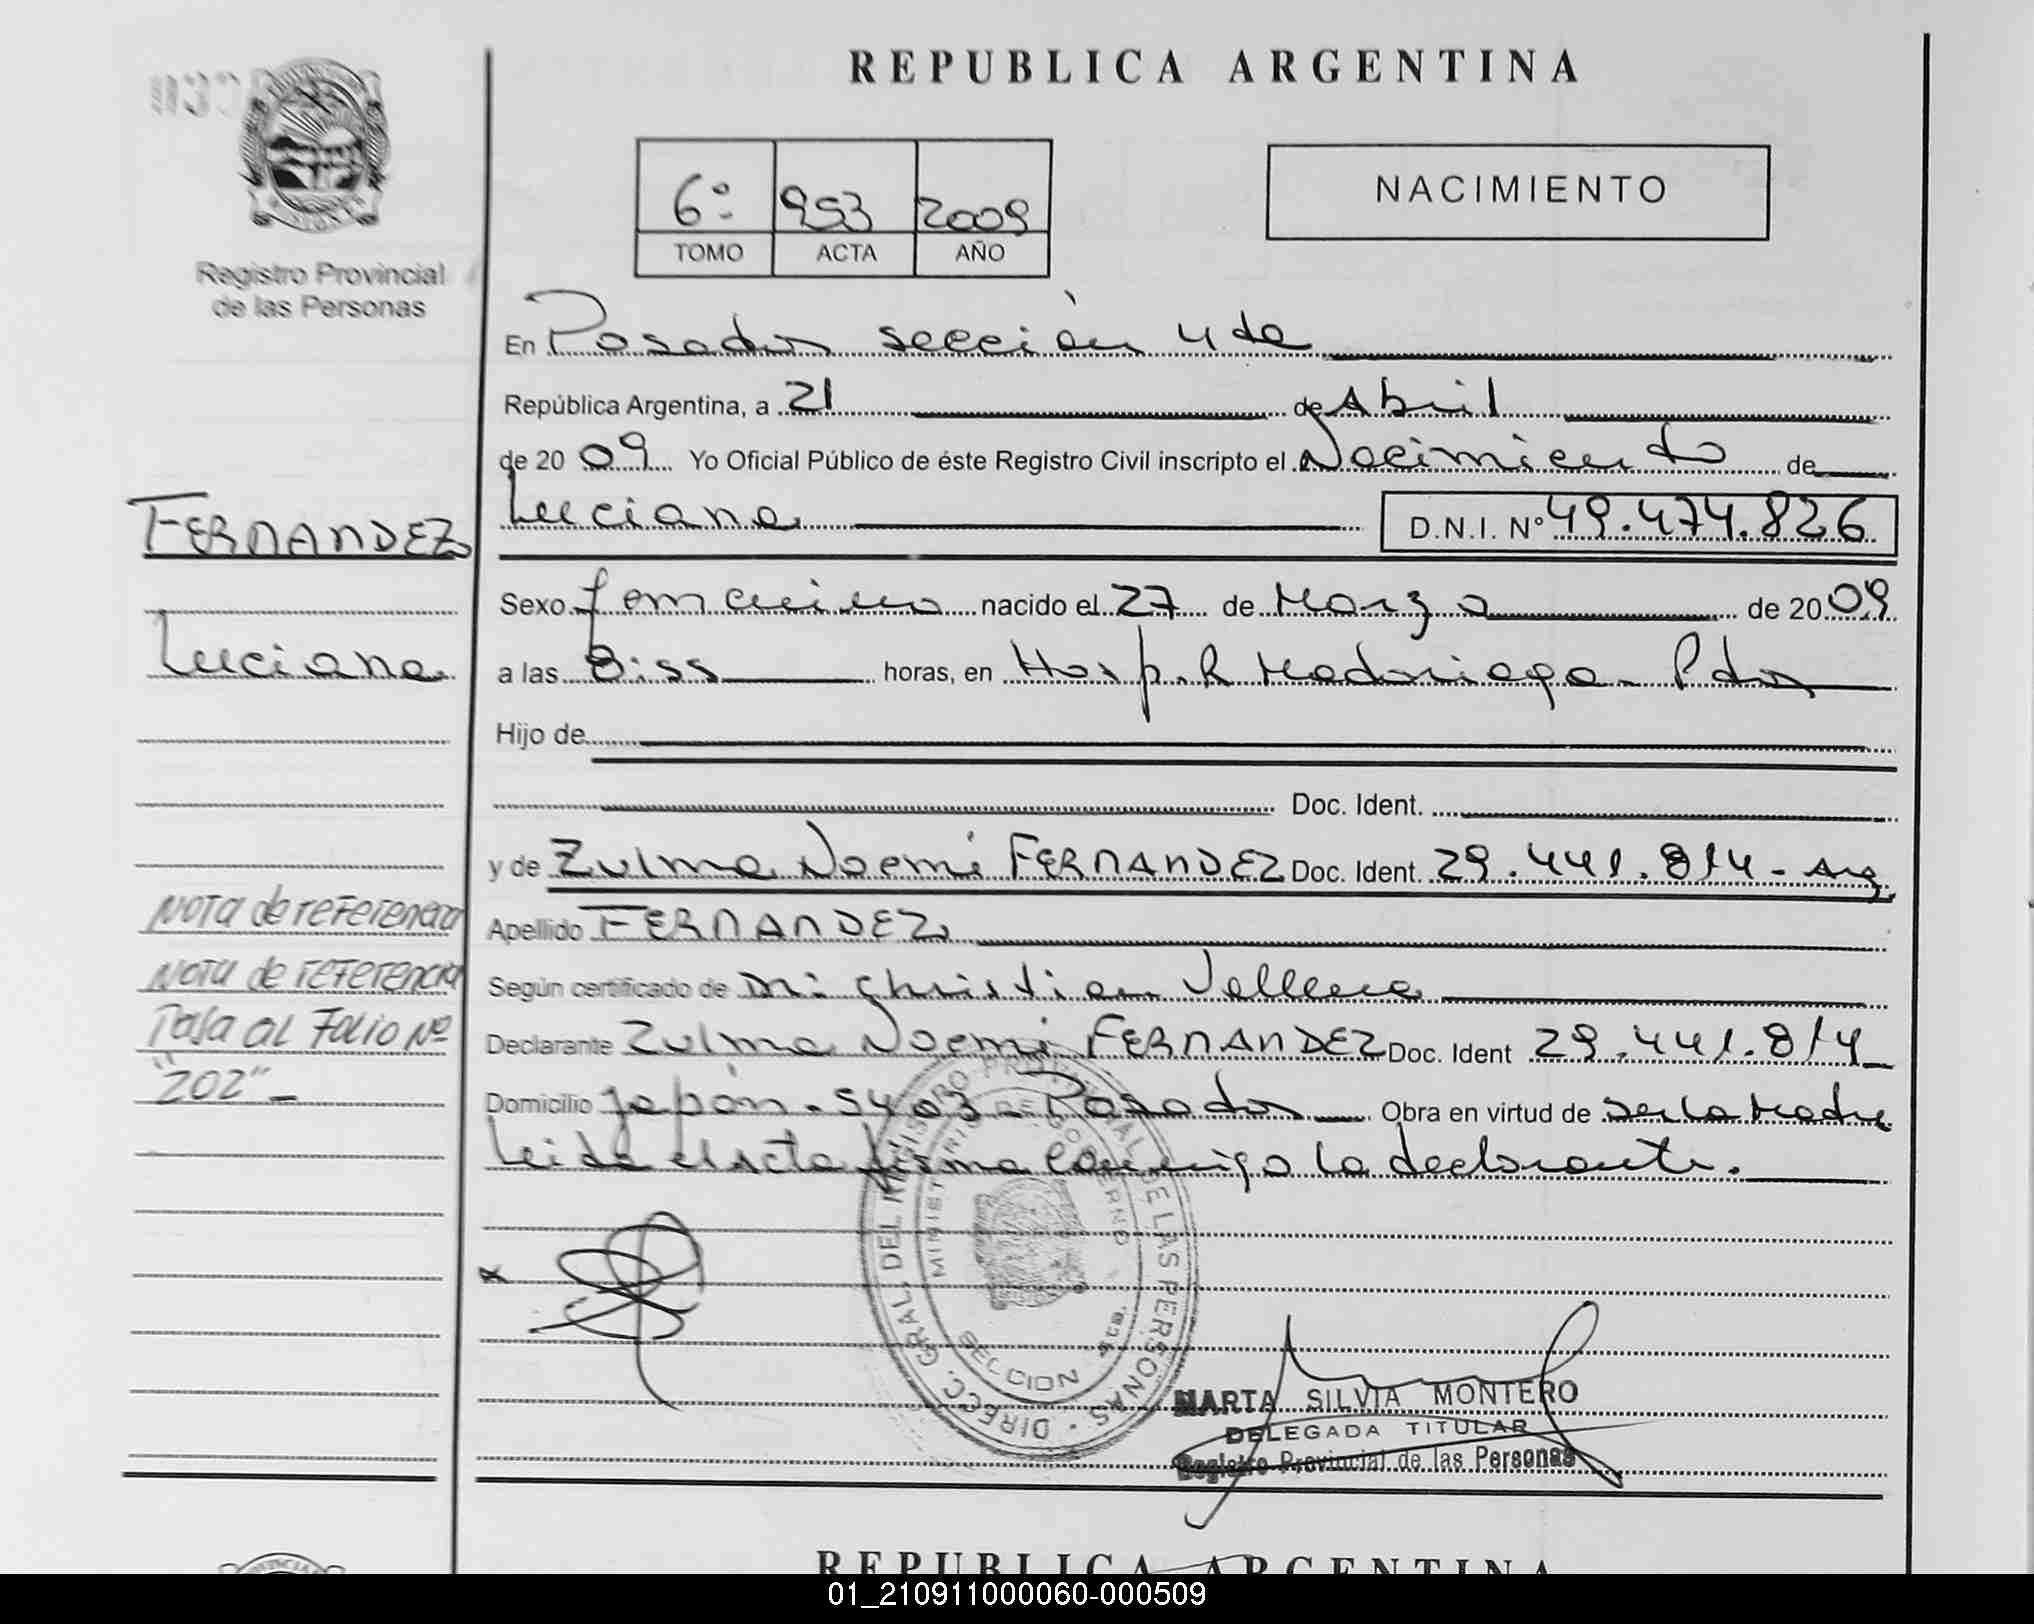 REPUBLICA ARGENTINA
6º
953
2009
TOMO
ACTA
AÑO
NACIMIENTO
Registro Provincial
de las Personas
En Posadas sección 4ta
República Argentina, a 21 de Abril
de 20 09 Yo Oficial Público de éste Registro Civil inscripto el Nacimiento de
Luciana D.N.I. Nº 49.474.826
FERNANDEZ
Luciana
Sexo femenino nacido el 27 de Marzo de 2009
a las 8:55 horas, en Hosp. R Madariaga - Pdas
Hijo de
Doc. Ident.
y de Zulma Noemi FERNANDEZ Doc. Ident. 29.441.814 - Arg.
Apellido FERNANDEZ
Según certificado de Dr: Christian
Declarante Zulma Noemi FERNANDEZ Doc. Ident 29.441.814
Domicilio Japón - 5403 - Posadas Obra en virtud de ser la Madre
Leida el acta firma conmigo la declarante.
Nota de referencia
Nota de referencia
Pasa al Folio Nº
"202" -
DIRECC. GRAL. DEL REGISTRO PROVINCIAL DE LAS PERSONAS
MINISTERIO DE GOBIERNO
SECCION 4ta.
MARTA SILVIA MONTERO
DELEGADA TITULAR
Registro Provincial de las Personas
REPUBLICA ARGENTINA
01_210911000060-000509